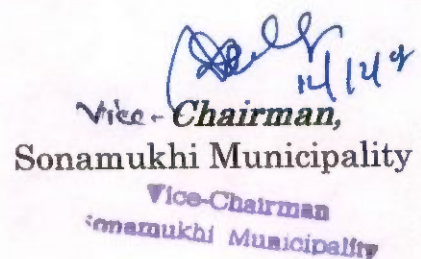 12/12/
Vice-Chairman,
Sonamukhi Municipality
Vice-Chairman
Sonamukhi Municipality